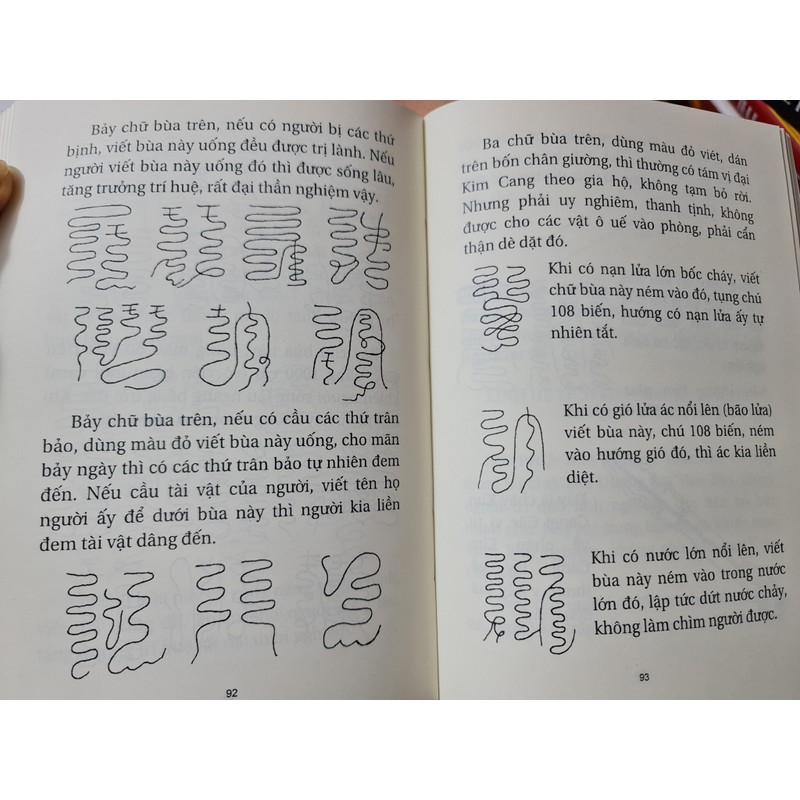 Bảy chữ bùa trên, nếu có người bị các thứ
bịnh, viết bùa này uống đều được trị lành. Nếu
người viết bùa này uống đó thì được sống lâu,
tăng trưởng trí huệ, rất đại thần nghiệm vậy.
Bảy chữ bùa trên, nếu có cầu các thứ trân
bảo, dùng màu đỏ viết bùa này uống, cho mãn
bảy ngày thì có các thứ trân bảo tự nhiên đem
đến. Nếu cầu tài vật của người, viết tên họ
người ấy để dưới bùa này thì người kia liền
đem tài vật dâng đến.
92
Ba chữ bùa trên, dùng màu đỏ viét, dán
trên bốn chân giường, thì thường có tám vị đại
Kim Cang theo gia hộ, không tạm bỏ rời.
Nhưng phải uy nghiêm, thanh tịnh, không
được cho các vật ô uế vào phòng, phải cẩn
thận dè dặt đó.
Khi có nạn lửa lớn bốc cháy, viết
chữ bùa này ném vào đó, tụng chú
108 biến, hướng có nạn lửa ấy tự
nhiên tắt.
Khi có gió lửa ác nổi lên (bão lửa)
viết bùa này, chú 108 biến, ném
vào hướng gió đó, thì ác kia liền
diệt.
Khi có nước lớn nổi lên, viết
bùa này ném vào trong nước
lớn đó, lập tức dứt nước chảy,
không làm chìm người được.
93